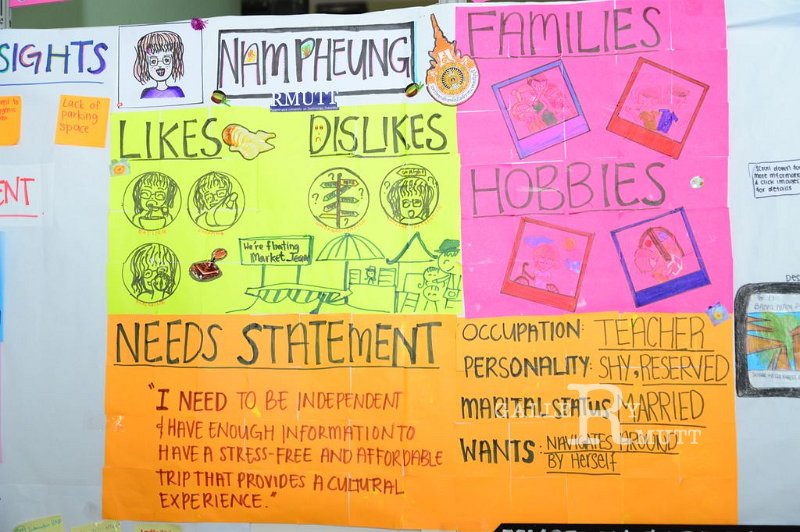 SIGHTS
NAMPHEUNG
FAMILIES
RMUTT
Lack of
parking
space
LIKES
DISLIKES
HOBBIES
We're floating
Market Team
ENT
NEEDS STATEMENT
"I NEED TO BE INDEPENDENT
& HAVE ENOUGH INFORMATION TO
HAVE A STRESS-FREE AND AFFORDABLE
TRIP THAT PROVIDES A CULTURAL
EXPERIENCE."
OCCUPATION: TEACHER
PERSONALITY: SHY, RESERVED
MARITAL STATUS: MARRIED
WANTS: NAVIGATES AROUND
By Herself
RMUTT
Scroll down for
more information
& click images
for details